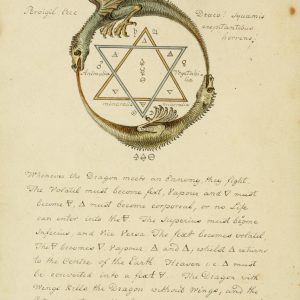 Draco! Squamis
crepitantibus
horrens,
Animalia
Vegetabi
lia
mineralia
Whenever the Dragon meets an Ennemy they fight.
The Volatil must become fixt, Vapour and 🜄 must
become 🜃, 🜂 must become corporeal, or no Life
can enter into the 🜃. The Superius must become
Inferius and Vice Versa. The fixt becomes volatil,
The 🜃 becomes 🜄 Vapour 🜁 and 🜂, whilst 🜂 returns
to the Centre of the Earth. Heaven i.e. 🜂 must
be converted into a fixt 🜃. The Dragon with
Wings kills the Dragon without Wings, and the